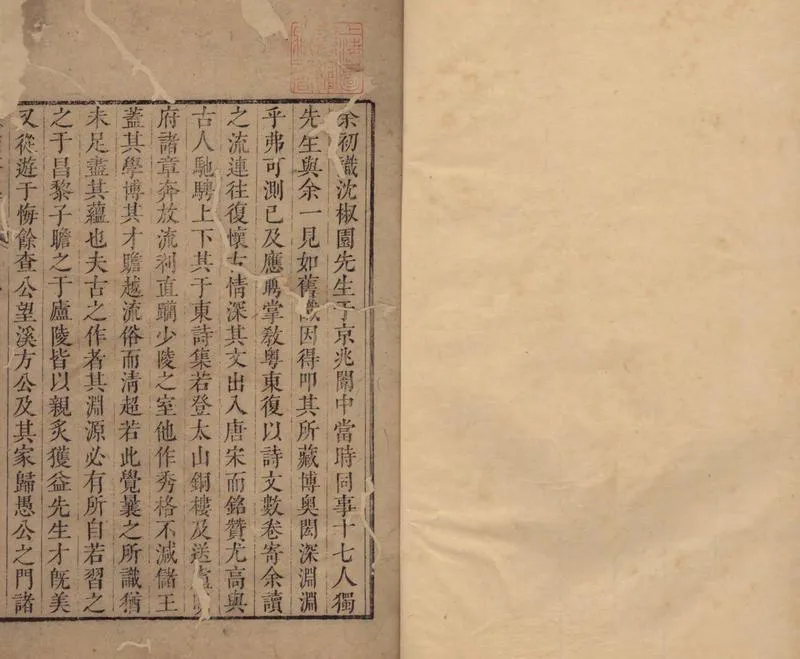 余初識沈椒園先生于京兆闈中當時同事十七人獨
先生與余一見如舊因得叩其所藏博奧閎深淵淵
乎弗可測已及應聘掌教粵東復以詩文數卷寄余讀
之流連往復懷古情深其文出入唐宋而銘贊尤高與
古人馳騁上下其于東詩集若登太山銅樓及送
府諸章奔放流利直躪少陵之室他作秀格不減儲王
蓋其學博其才贍越流俗而清超若此覺曩之所識猶
未足盡其蘊也夫古之作者其淵源必有所自若習之
之于昌黎子瞻之于廬陵皆以親炙獲益先生才既美
又從遊于悔餘查公望溪方公及其家歸愚公之門諸